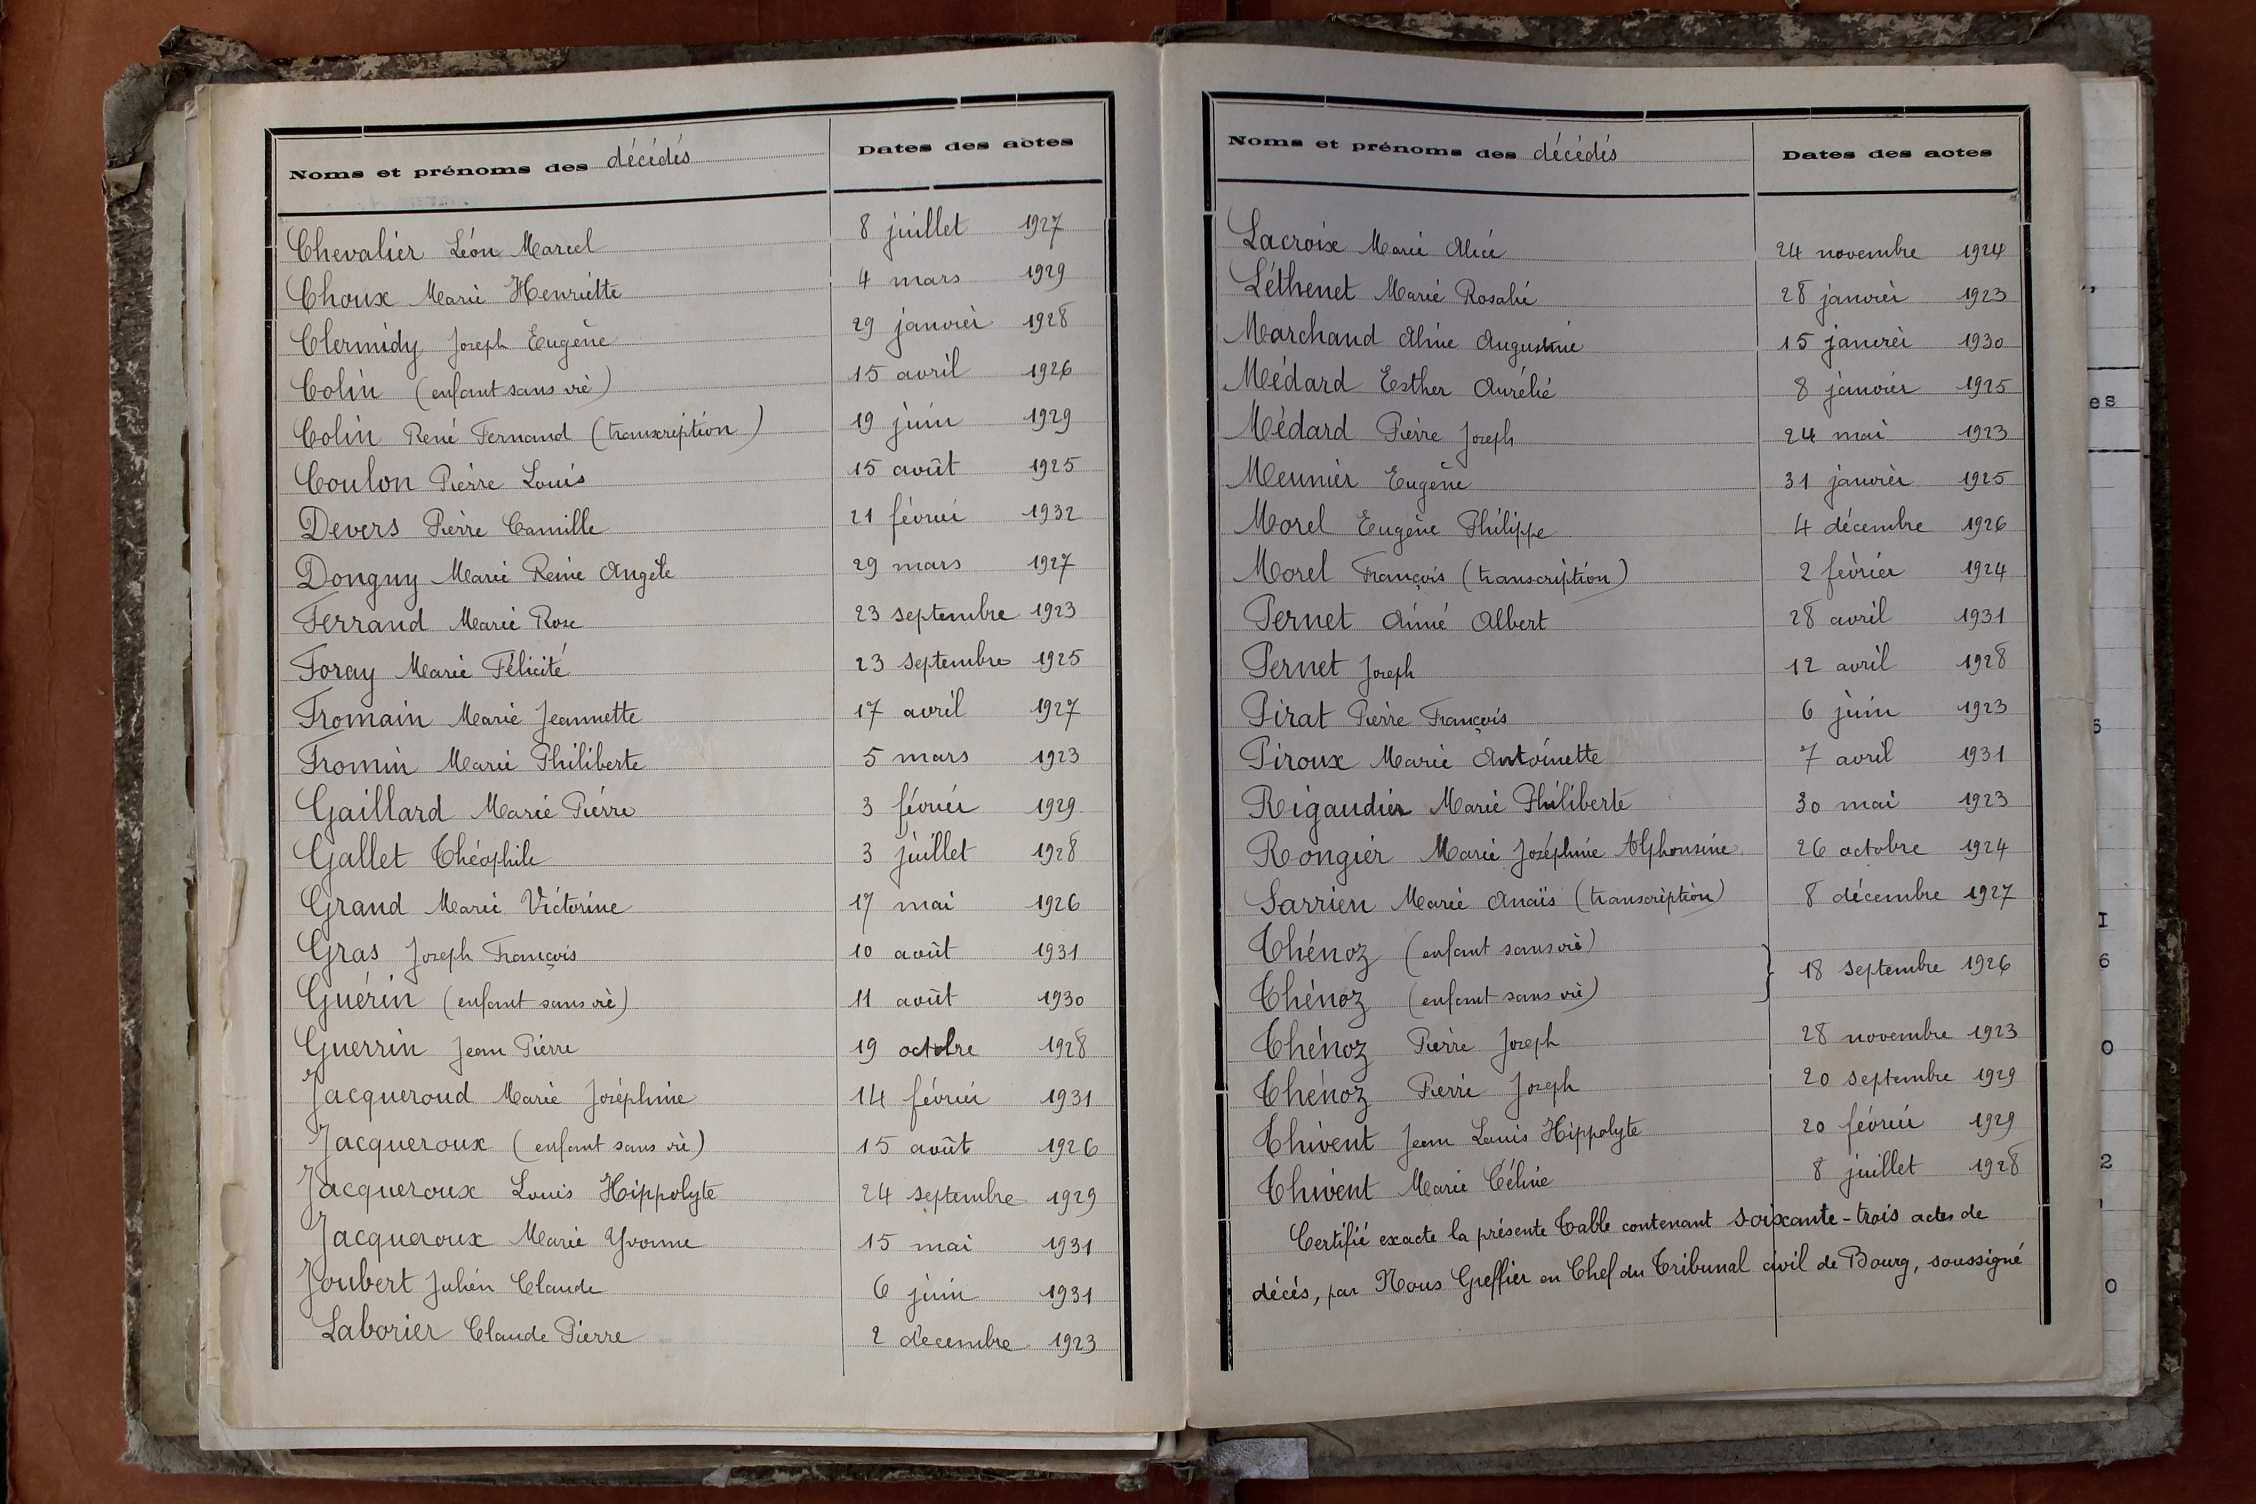 Noms et prénoms des décédés Dates des actes
Chevalier Léon Marcel 8 juillet 1927
Choux Marie Henriette 4 mars 1929
Clermidy Joseph Eugène 29 janvier 1928
Colin (enfant sans vie) 15 avril 1926
Colin René Fernand (transcription) 19 juin 1929
Coulon Pierre Louis 15 août 1925
Devers Pierre Camille 21 février 1932
Donguy Marie Reine Angèle 29 mars 1927
Ferrand Marie Rose 23 septembre 1923
Foray Marie Félicité 23 septembre 1925
Fromain Marie Jeannette 17 avril 1927
Fromin Marie Philiberte 5 mars 1923
Gaillard Marie Pierre 3 février 1929
Gallet Théophile 3 juillet 1928
Grand Marie Victorine 17 mai 1926
Gras Joseph François 10 août 1931
Guérin (enfant sans vie) 11 août 1930
Guerrin Jean Pierre 19 octobre 1928
Jacqueroud Marie Joséphine 14 février 1931
Jacqueroux (enfant sans vie) 15 août 1926
Jacqueroux Louis Hippolyte 24 septembre 1929
Jacqueroux Marie Yvonne 15 mai 1931
Joubert Julien Claude 6 juin 1931
Laborier Claude Pierre 2 décembre 1923
Noms et prénoms des décédés Dates des actes
Lacroix Marie Alice 24 novembre 1924
Léthenet Marie Rosalie 28 janvier 1923
Marchand Aline Augustine 15 janvier 1930
Médard Esther Aurélie 8 janvier 1925
Médard Pierre Joseph 24 mai 1923
Meunier Eugène 31 janvier 1925
Morel Eugène Philippe 4 décembre 1926
Morel François (transcription) 2 février 1924
Pernet Aimé Albert 28 avril 1931
Pernet Joseph 12 avril 1928
Pirat Pierre François 6 juin 1923
Piroux Marie Antoinette 7 avril 1931
Rigaudier Marie Philiberte 30 mai 1923
Rongier Marie Joséphine Alphonsine 26 octobre 1924
Sarrien Marie Anaïs (transcription) 8 décembre 1927
Thénoz (enfant sans vie)
Thénoz (enfant sans vie) } 18 septembre 1926
Thénoz Pierre Joseph 28 novembre 1923
Thénoz Pierre Joseph 20 septembre 1929
Thivent Jean Louis Hippolyte 20 février 1929
Thivent Marie Céline 8 juillet 1928
Certifié exacte la présente Table contenant soixante-trois actes de
décès, par Nous Greffier en Chef du Tribunal civil de Bourg, soussigné
es
6
I
6
0
2
0